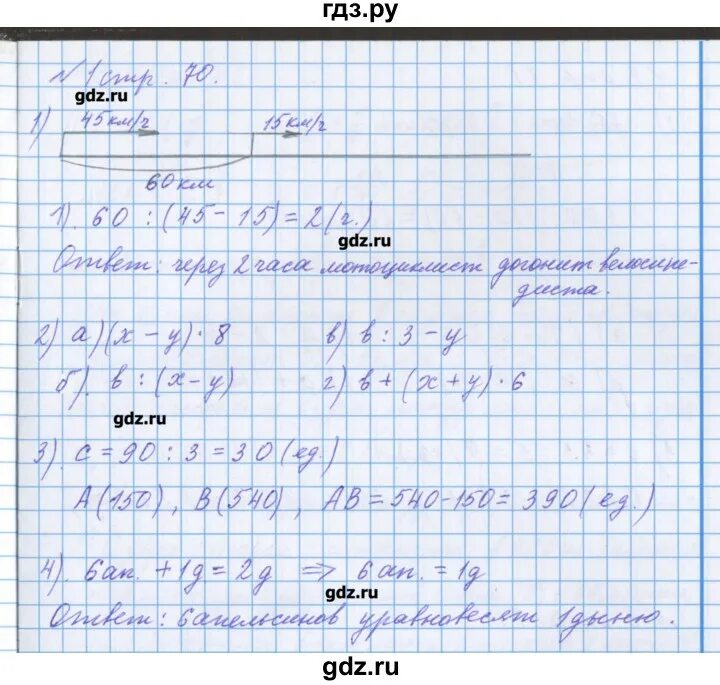 гдз.ру
№ 1 стр. 70.
gdz.ru
1) 45 км/ч 15 км/ч
60 км
1). 60 : (45 - 15) = 2 (г.)
gdz.ru
Ответ: через 2 часа мотоциклист догонит велосипе-
диста.
2) а) (x - y) · 8 в) в : 3 - y
б). в : (x - y) г) в + (x + y) · 6
gdz.ru
3). c = 90 : 3 = 30 (ед.)
A (150), B (540), AB = 540 - 150 = 390 (ед.)
4). 6 ап. + 1д = 2д => 6 ап. = 1д
gdz.ru
Ответ: 6 апельсинов уравновесят 1 дыню.
gdz.ru